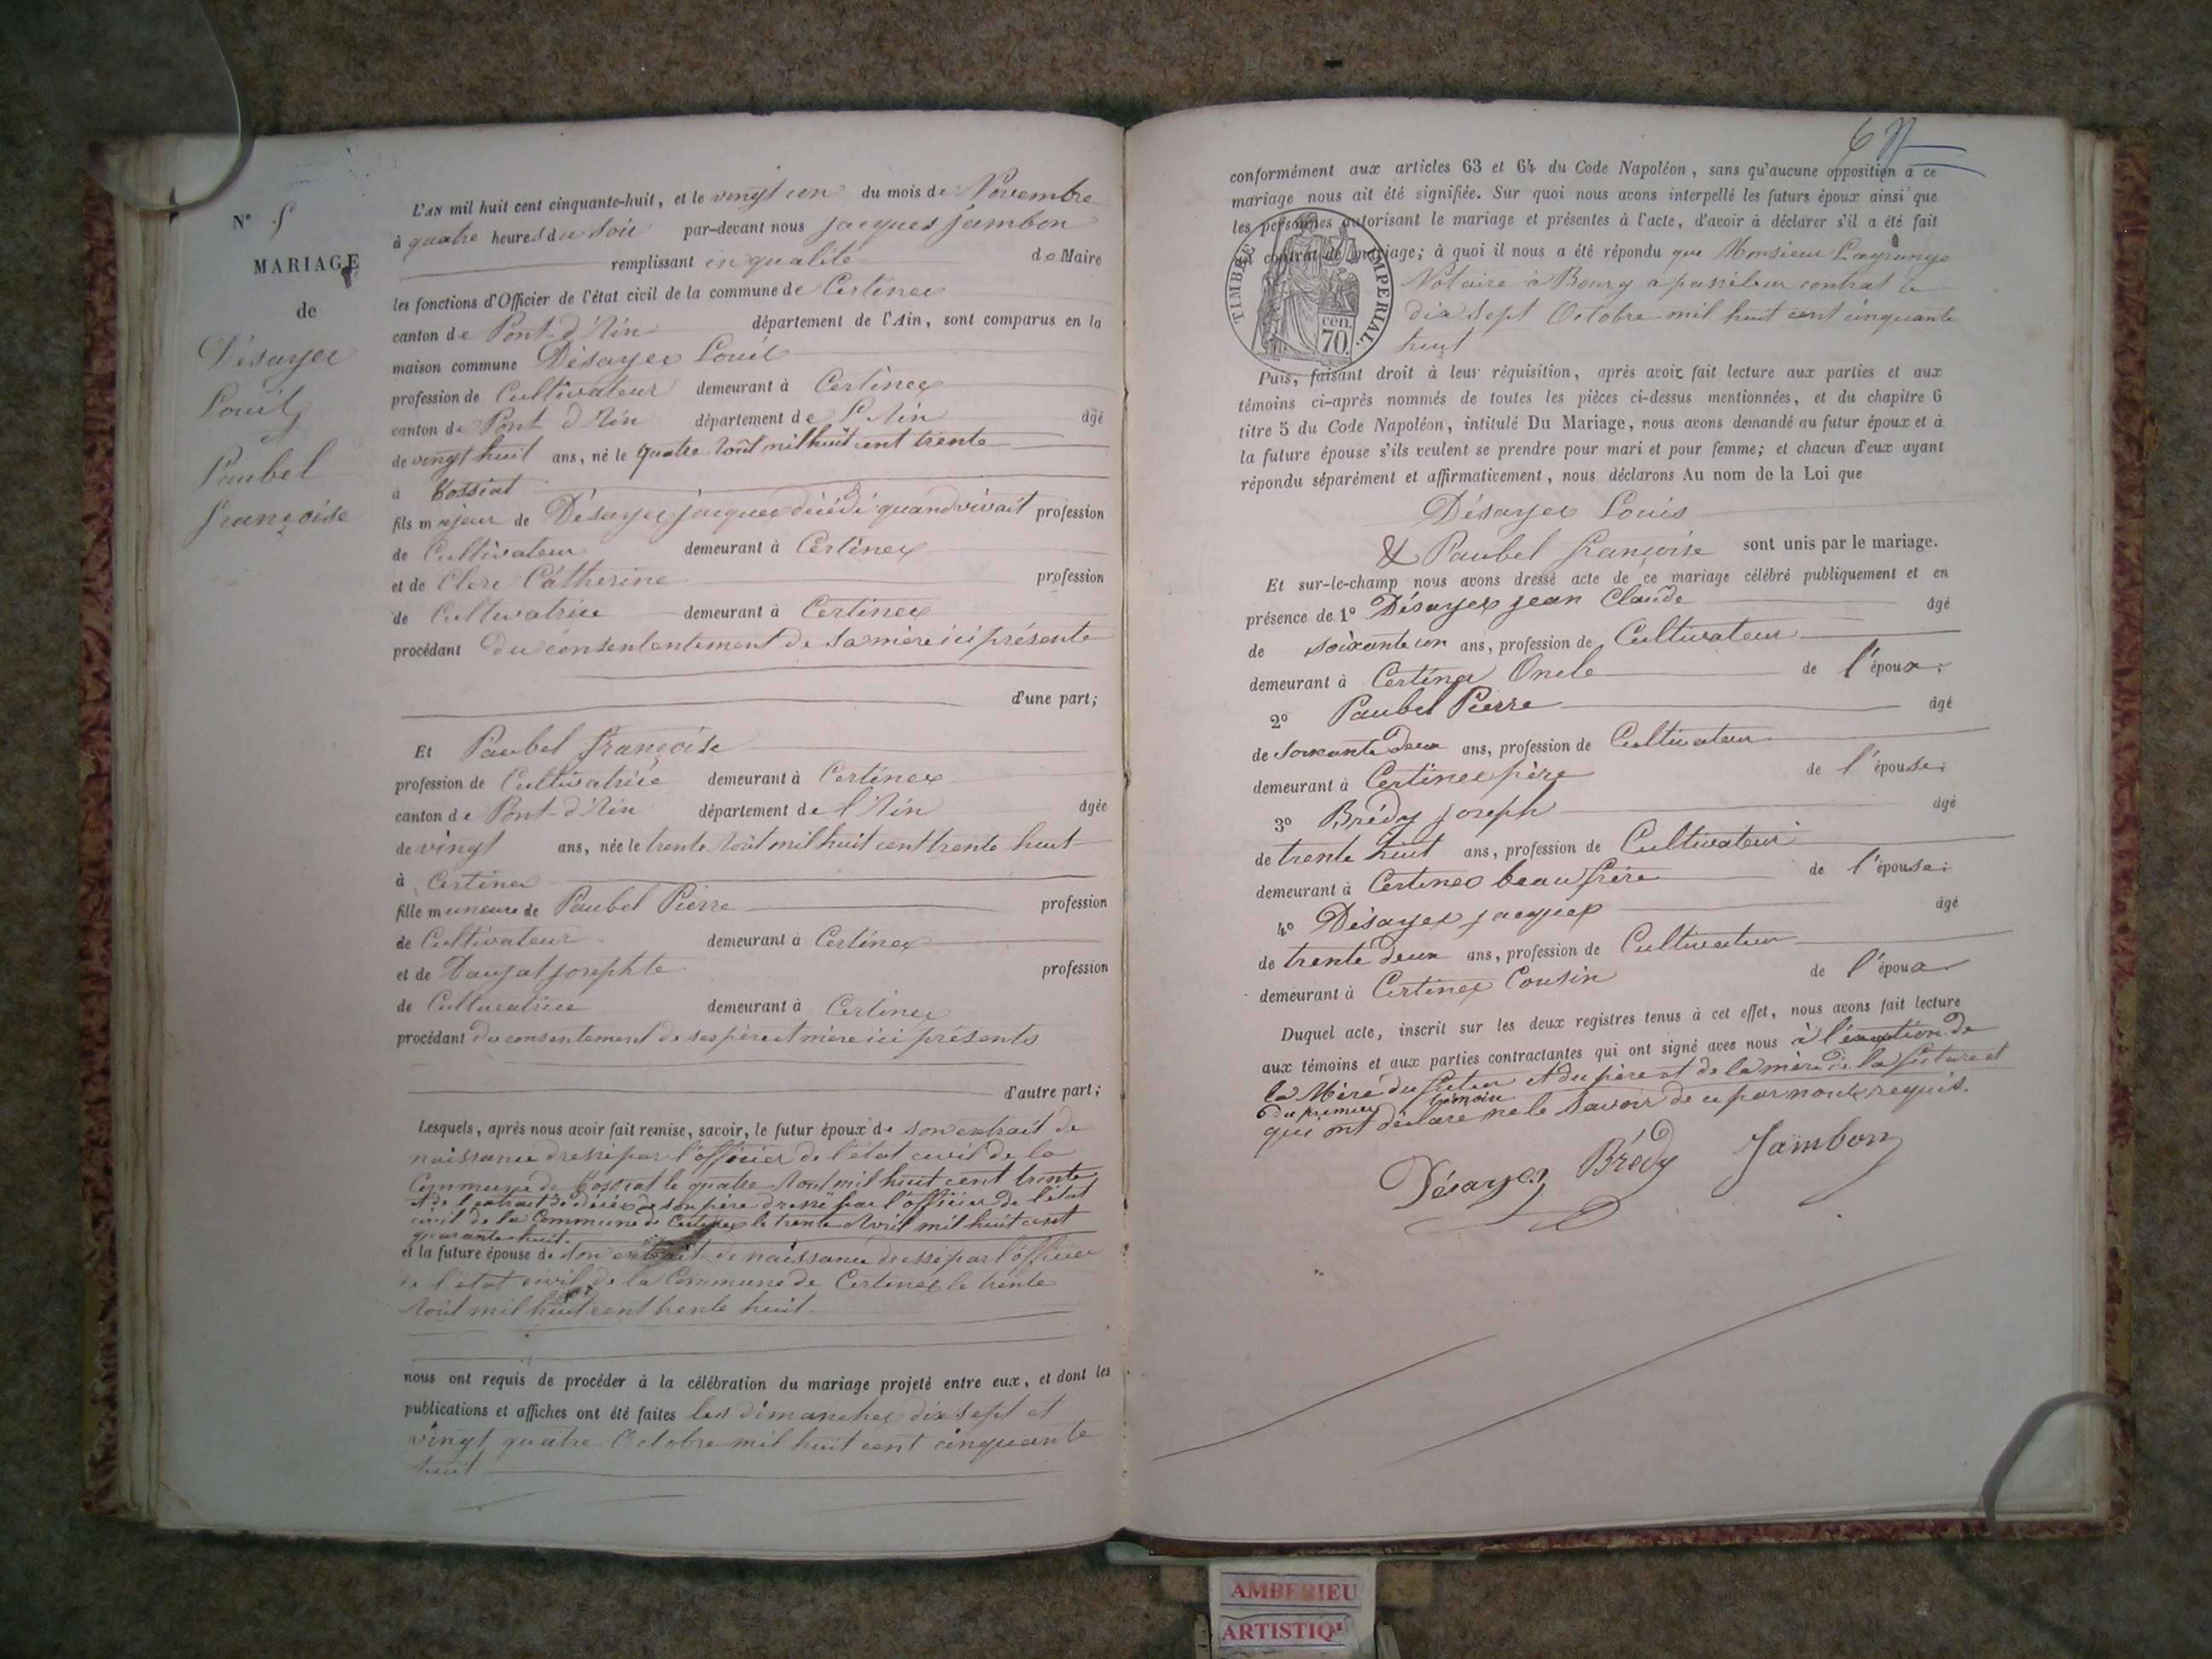 N° 5
MARIAGE
de
Désayes
Louis
et
Paubel
françoise
L'AN mil huit cent cinquante-huit, et le vingt un du mois de Novembre
à quatre heures du Soir par-devant nous jacques jambon
remplissant en qualité de Maire
les fonctions d'Officier de l'état civil de la commune de Certines
canton de Pont-d'Ain département de l'Ain, sont comparus en la
maison commune Désayes Louis
profession de Cultivateur demeurant à Certines
canton de Pont d'Ain département de L'Ain âgé
de vingt huit ans, né le quatre Aoùt mil huit cent trente
à Tossiat
fils majeur de Désayes jacques décédé quand vivait profession
de Cultivateur demeurant à Certines
et de Clerc Catherine profession
de Cultivatrice demeurant à Certines
procédant du consententement de sa mère ici présente
d'une part;
Et Paubel françoise
profession de Cultivatrice demeurant à Certines
canton de Pont-d'Ain département de l'Ain âgée
de vingt ans, née le trente Août mil huit cent trente huit
à Certines
fille mineure de Paubel Pierre profession
de Cultivateur demeurant à Certines
et de josephte profession
de Cultivatrice demeurant à Certines
procédant du consentement de ses père et mère ici présents
d'autre part;
Lesquels, après nous avoir fait remise, savoir, le futur époux de son extrait de
naissance dressé par l'officier de l'état civil de la
Commune de Tossiat le quatre Aout mil huit cent trente
et de l'extrait de décès de son père dressé par l'officier de l'état
civil de la Commune de Certines le trente Avril mil huit cent
quarante huit.
et la future épouse de son extrait de naissance dressé par l'officier
de l'état civil de la Commune de Certines le trente
Août mil huit cent trente huit
nous ont requis de procéder à la célébration du mariage projeté entre eux, et dont les
publications et affiches ont été faites les dimanches dix sept et
vingt quatre Octobre mil huit cent cinquante
huit
conformément aux articles 63 et 64 du Code Napoléon, sans qu'aucune opposition à ce
mariage nous ait été signifiée. Sur quoi nous avons interpellé les futurs époux ainsi que
les personnes autorisant le mariage et présentes à l'acte, d'avoir à déclarer s'il a été fait
un contrat de mariage; à quoi il nous a été répondu que Monsieur Lagrange
Notaire à Bourg a passé leur contrat le
dix sept Octobre mil huit cent cinquante
huit
TIMBRE IMPERIAL.
70. cen.
Puis, faisant droit à leur réquisition, après avoir fait lecture aux parties et aux
témoins ci-après nommés de toutes les pièces ci-dessus mentionnées, et du chapitre 6
titre 5 du Code Napoléon, intitulé Du Mariage, nous avons demandé au futur époux et à
la future épouse s'ils veulent se prendre pour mari et pour femme; et chacun d'eux ayant
répondu séparément et affirmativement, nous déclarons Au nom de la Loi que
Désayes Louis
& Paubel françoise sont unis par le mariage.
Et sur-le-champ nous avons dressé acte de ce mariage célébré publiquement et en
présence de 1° Désayes jean Claude âgé
de soixante un ans, profession de Cultivateur
demeurant à Certines Oncle de l'époux;
2° Paubel Pierre âgé
de soixante Deux ans, profession de Cultivateur
demeurant à Certines père de l'épouse;
3° Brédy joseph âgé
de trente huit ans, profession de Cultivateur
demeurant à Certines beau frère de l'épouse;
4° Désayes jacques âgé
de trente deux ans, profession de Cultivateur
demeurant à Certines Cousin de l'époux
Duquel acte, inscrit sur les deux registres tenus à cet effet, nous avons fait lecture
aux témoins et aux parties contractantes qui ont signé avec nous à l'exeption de
la Mère du futur et du père et de la mère de la future et
du premier témoin
qui ont déclaré ne le Savoir de ce par nous requis.
Désayes Brédy Jambon
AMBERIEU
ARTISTIQ